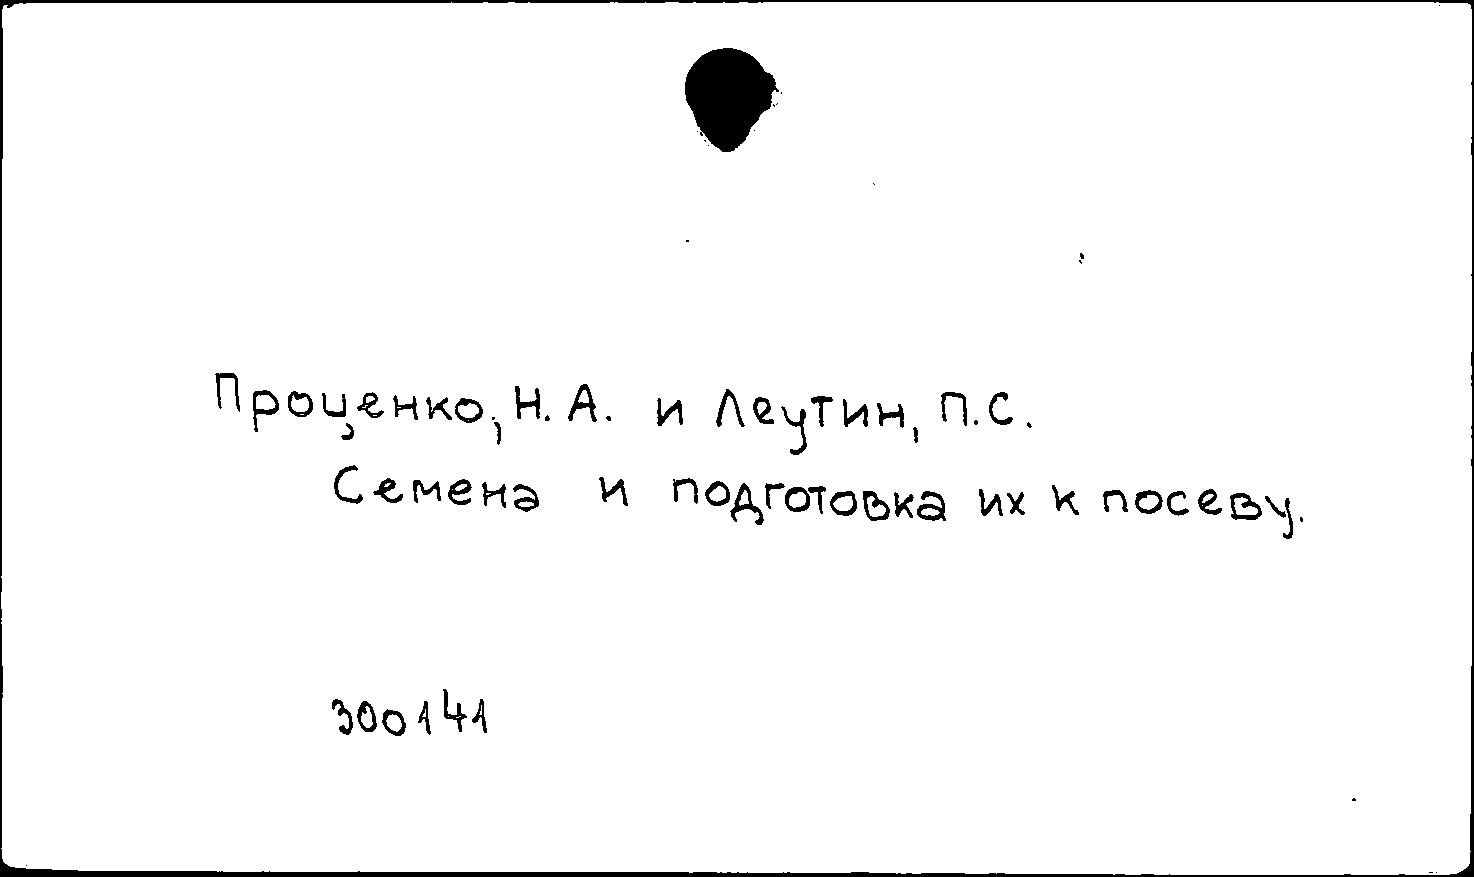 Проценко, Н. А. и Леутин, П. С.
Семена и подготовка их к посеву.
300141